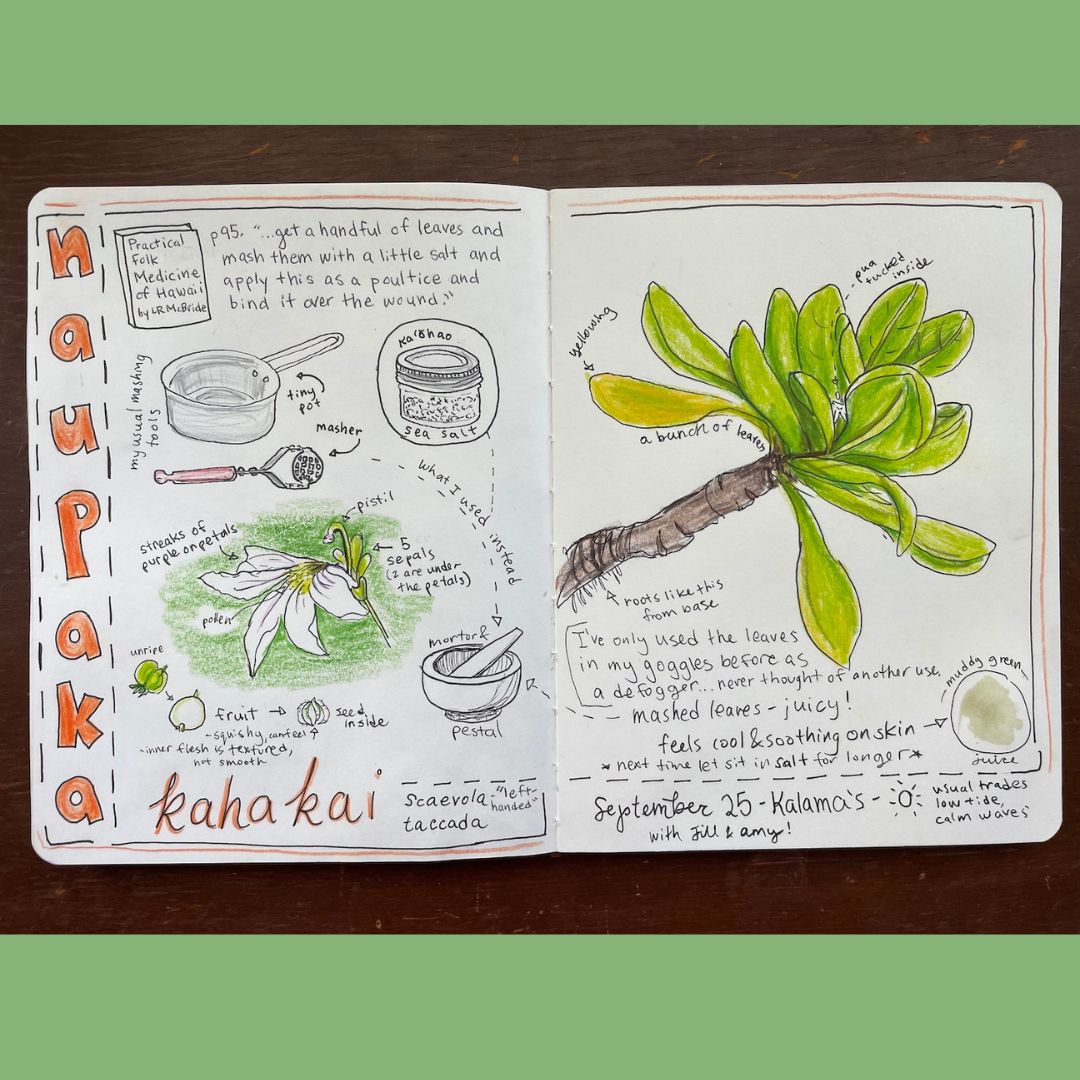 naupaka
Practical
Folk
Medicine
of Hawaii
by LR McBride
p95. "...get a handful of leaves and
mash them with a little salt and
apply this as a poultice and
bind it over the wound."
my usual mashing
tools
tiny
pot
masher
sea salt
what I used instead
streaks of
purple on petals
pistil
5
sepals
(2 are under
the petals)
pollen
unripe
fruit
seed
inside
-squishy, can feel
-inner flesh is textured,
not smooth
mortor &
pestal
kahakai
scaevola
taccada
"left-
handed"
yellowing
pua
tucked
inside
a bunch of leaves
roots like this
from base
I've only used the leaves
in my goggles before as
a defogger...never thought of another use,
mashed leaves - juicy!
feels cool & soothing on skin
*next time let sit in salt for longer*
muddy green
juice
September 25 - Kalama's -
with Jill & Amy!
usual trades
low tide,
calm waves